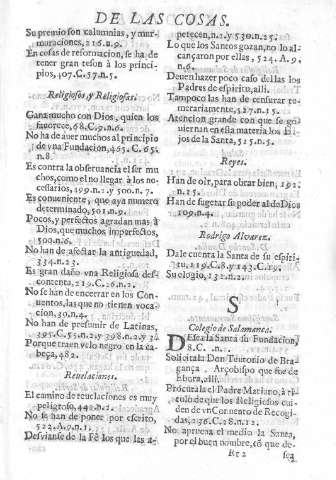 DE LAS COSAS.
Su premio son calumnias, y mur-
muraciones, 216. n. 9.
En cosas de reformacion, se ha de
tener gran teson à los princi-
pios, 407. C. 57. n. 5.
Religiosos, y Religiosas.
Gana mucho con Dios, quien los
favorece, 68. C. 9. n. 6.
No ha de auer muchos al principio
de vna Fundacion, 463. C. 65.
n. 8.
Es contra la obseruancia el ser mu
chos, como el no llegar à los ne-
cessarios, 499. n. 2. y 500. n. 7.
Es conueniente, que aya numero
determinado, 501. n. 9.
Pocos, y perfectos agradan mas à
Dios, que muchos imperfectos,
500. n. 6.
No han de afectar la antiguedad,
334. n. 23.
Es gran daño vna Religiosa des-
contenta, 219. C. 26. n. 2.
No se han de encerrar en los Con-
uentos, las que no tienen voca-
cion, 30. n. 4.
No han de presumir de Latinas,
395. C. 55. n. 2. y 398. n. 2. y
Porque traen velo negro en la ca-
beça, 482.
Reuelaciones.
El camino de reuelaciones es muy
peligroso, 440. n. 1.
No se han de poner por escrito,
522. A. 9. n. 1.
Desvianse de la Fè los que las a-
petecen, n. 2. y 530. n. 25.
Lo que los Santos gozan, no lo al-
cançaron por ellas, 524. A. 9.
n. 6.
Deuen hazer poco caso dellas los
Padres de espiritu, alli.
Tampoco las han de censurar te-
merariamente, 527. n. 15.
Atencion grande con que se go-
uiernan en esta materia los Hi-
jos de la Santa, 525. n. 5.
Reyes.
Han de oìr, para obrar bien, 192.
n. 15.
Han de sugetar su poder al de Dios
109. n. 4.
Rodrigo Alvarez.
Dale cuenta la Santa de su espiri-
tu, 119. C. 8. y 143. C. 19.
Su elogio, 132. n. 2.
S
Colegio de Salamanca.
Dessea la Santa su Fundacion,
8. C. n. 2.
Solicitala Don Teutonio de Bra-
gança, Arçobispo que fue de
Ebora, alli.
Procurala el Padre Mariano, à ti-
tulo de que los Religiosos cui-
den de vn Conuento de Recogi-
das, 236. C. 28. n. 12.
No aprueua el medio la Santa,
por el buen nombre, cõ que de-
Rr 2 sea